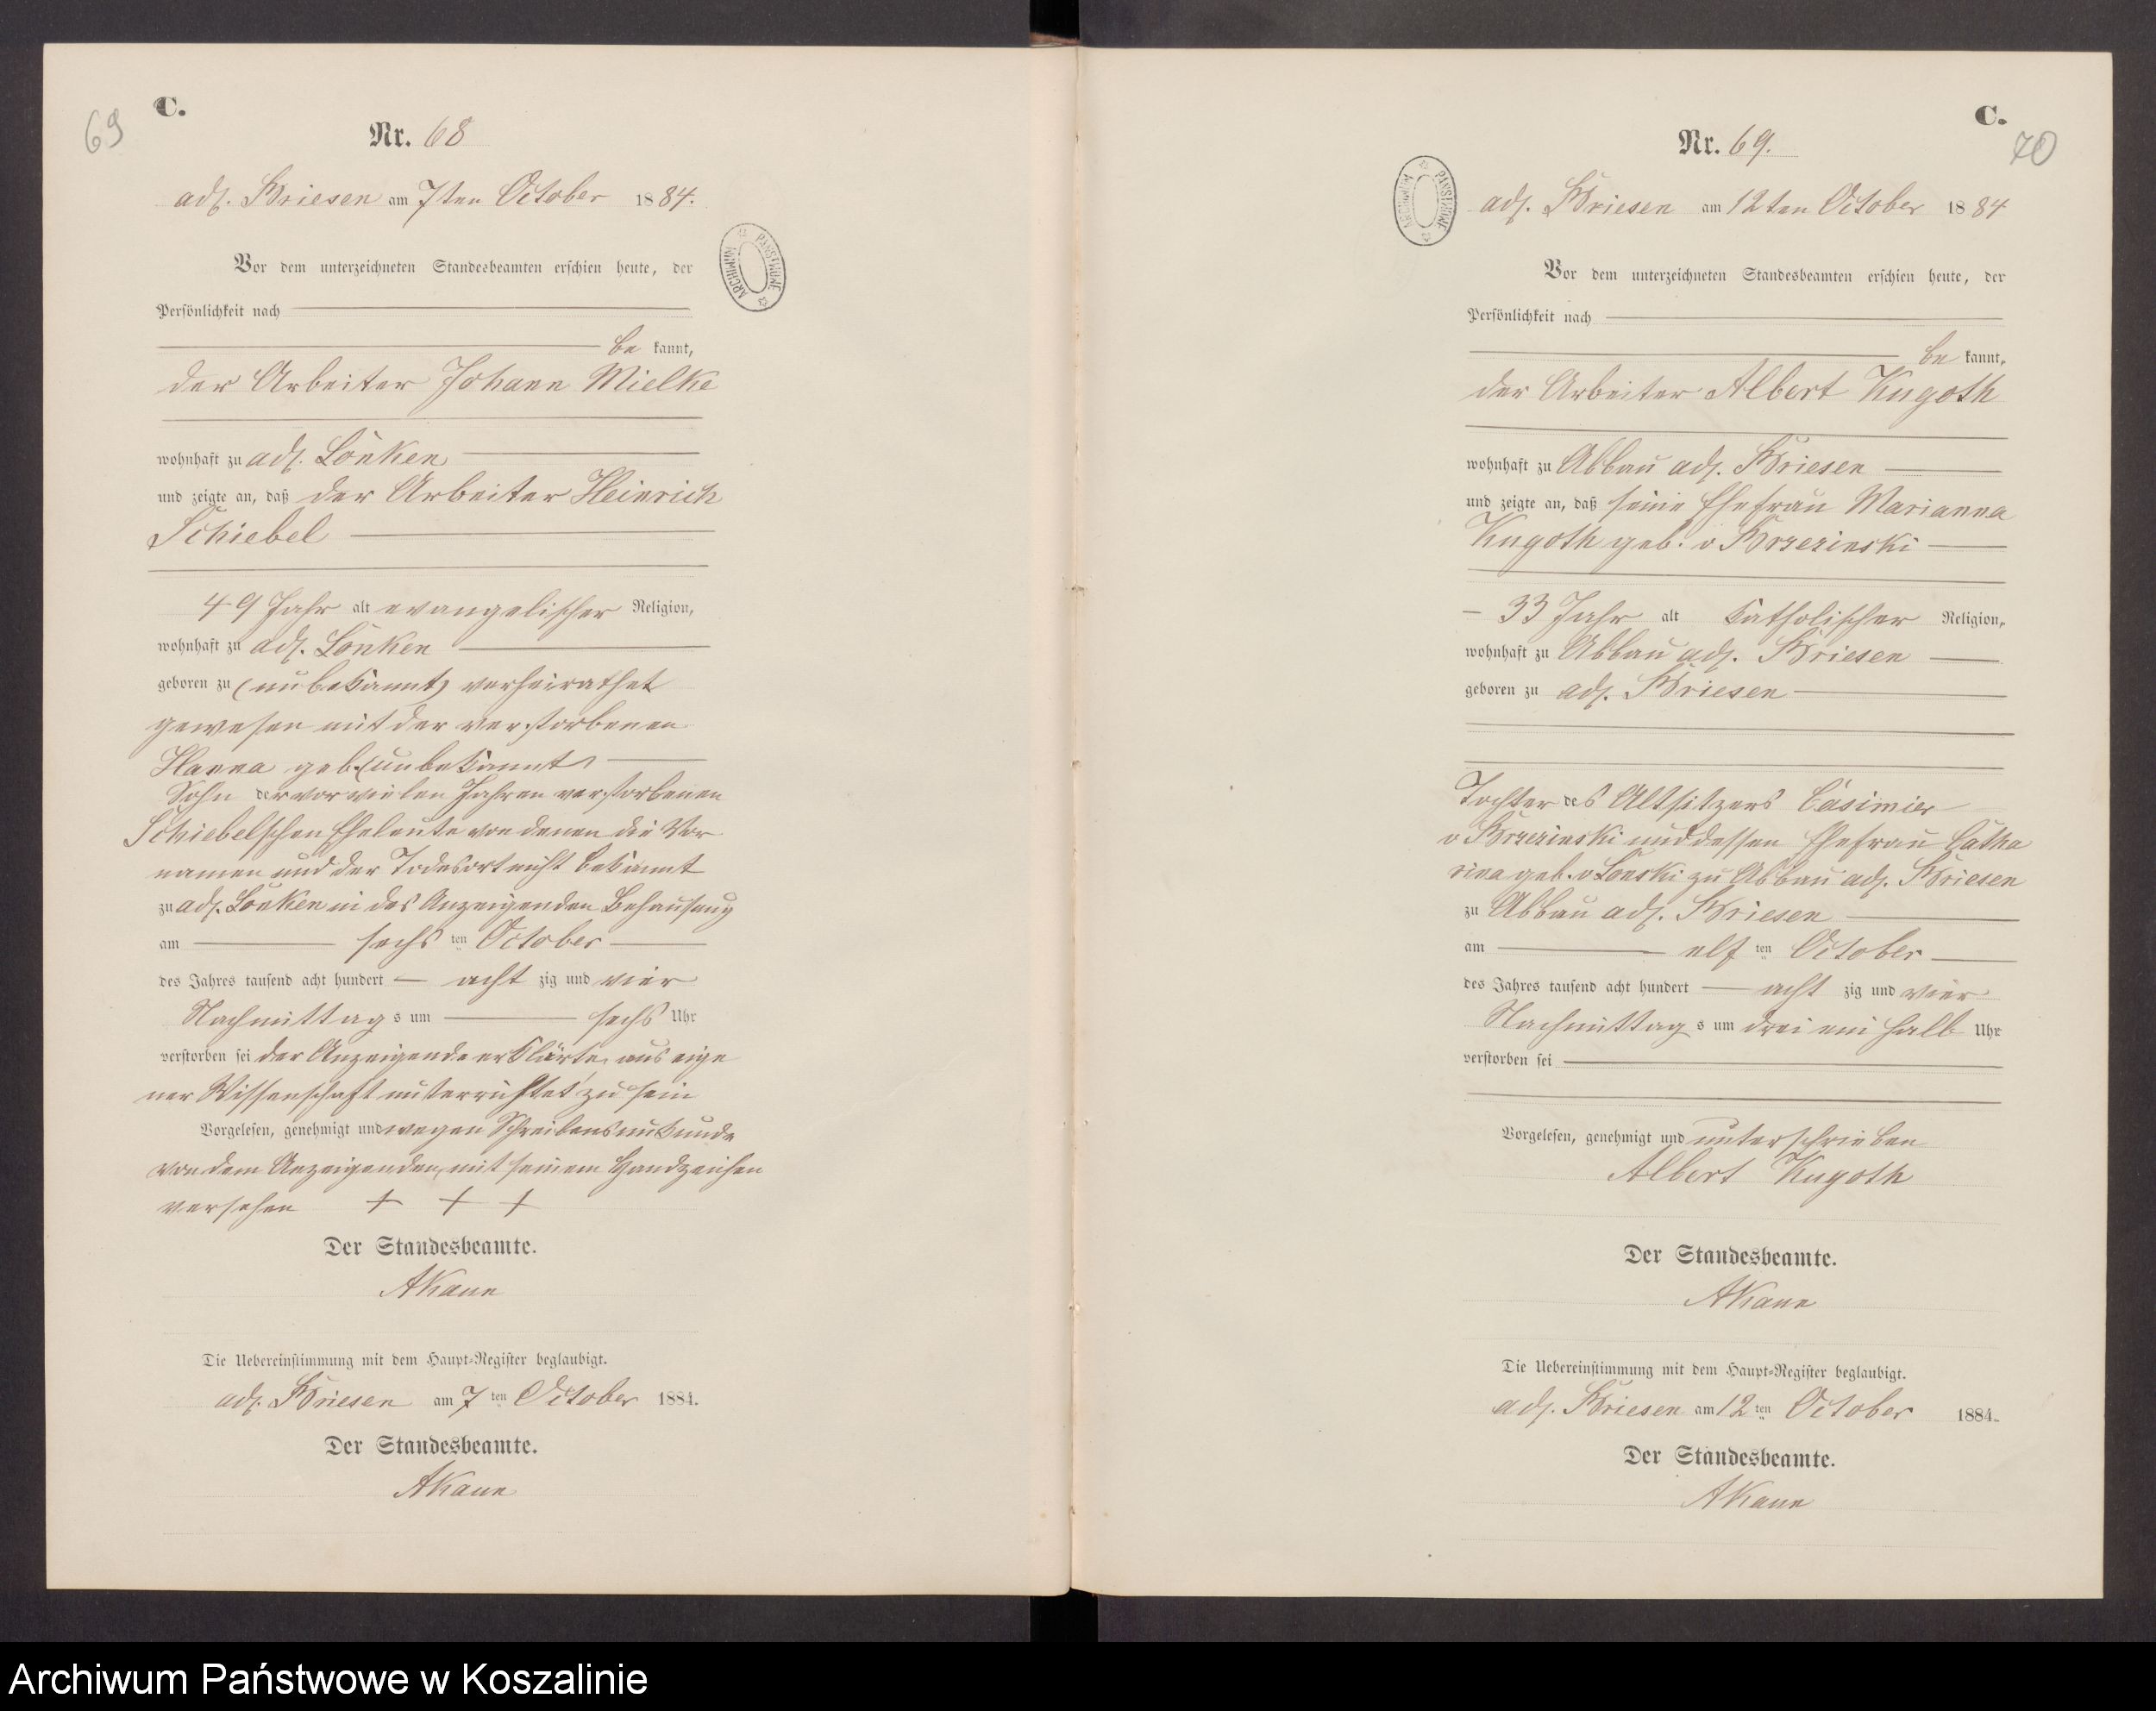 69
C.
Nr. 68
adl. Briesen am 7ten October 1884.
Vor dem unterzeichneten Standesbeamten erschien heute, der
Persönlichkeit nach
be kannt,
der Arbeiter Johann Mielke
wohnhaft zu adl. Lonken
und zeigte an, daß der Arbeiter Heinrich
Schiebel
49 Jahr alt evangelischer Religion,
wohnhaft zu adl. Lonken
geboren zu (unbekannt) verheirathet
gewesen mit der verstorbenen
Hanna geb. (unbekannt)
Sohn der vor vielen Jahren verstorbenen
Schiebelschen Eheleute von denen die Vor
namen und der Todesort nicht bekannt
zu adl. Lonken in des Anzeigenden Behausung
am sechs ten October
des Jahres tausend acht hundert acht zig und vier
Nachmittag s um sechs Uhr
verstorben sei der Anzeigende erklärte, aus eige
ner Wissenschaft unterrichtet zu sein
Vorgelesen, genehmigt und wegen Schreibensunkunde
von dem Anzeigenden, mit seinem Handzeichen
versehen + + +
Der Standesbeamte.
AKaun
Die Uebereinstimmung mit dem Haupt-Register beglaubigt.
adl. Briesen am 7 ten October 1884.
Der Standesbeamte.
AKaun
ARCHIWUM PAŃSTWOWE
C.
70
Nr. 69.
adl. Briesen am 12ten October 1884
Vor dem unterzeichneten Standesbeamten erschien heute, der
Persönlichkeit nach
be kannt,
der Arbeiter Albert Kugoth
wohnhaft zu Abbau adl. Briesen
und zeigte an, daß seine Ehefrau Marianna
Kugoth geb. v Brzezinski
33 Jahr alt katholischer Religion,
wohnhaft zu Abbau adl. Briesen
geboren zu adl. Briesen
Tochter des Altsitzers Casimier
v Brzezinski und dessen Ehefrau Catha
rina geb. v Lonski zu Abbau adl. Briesen
zu Abbau adl. Briesen
am elf ten October
des Jahres tausend acht hundert acht zig und vier
Nachmittag s um drei ein halb Uhr
verstorben sei
Vorgelesen, genehmigt und unterschrieben
Albert Kugoth
Der Standesbeamte.
AKaun
Die Uebereinstimmung mit dem Haupt-Register beglaubigt.
adl. Briesen am 12 ten October 1884.
Der Standesbeamte.
AKaun
ARCHIWUM PAŃSTWOWE
Archiwum Państwowe w Koszalinie